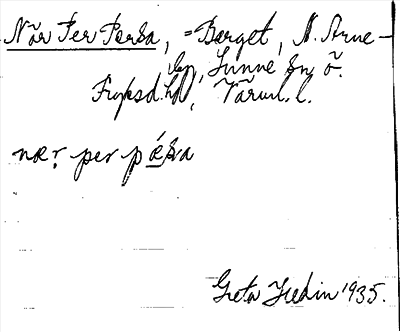 När Per Persa, = Berget, N. Arne-
by, Sunne sn, ö.
Fryksd. hd, Värml. l.
næ:r per pæ̀sa
Greta Hedin 1935.